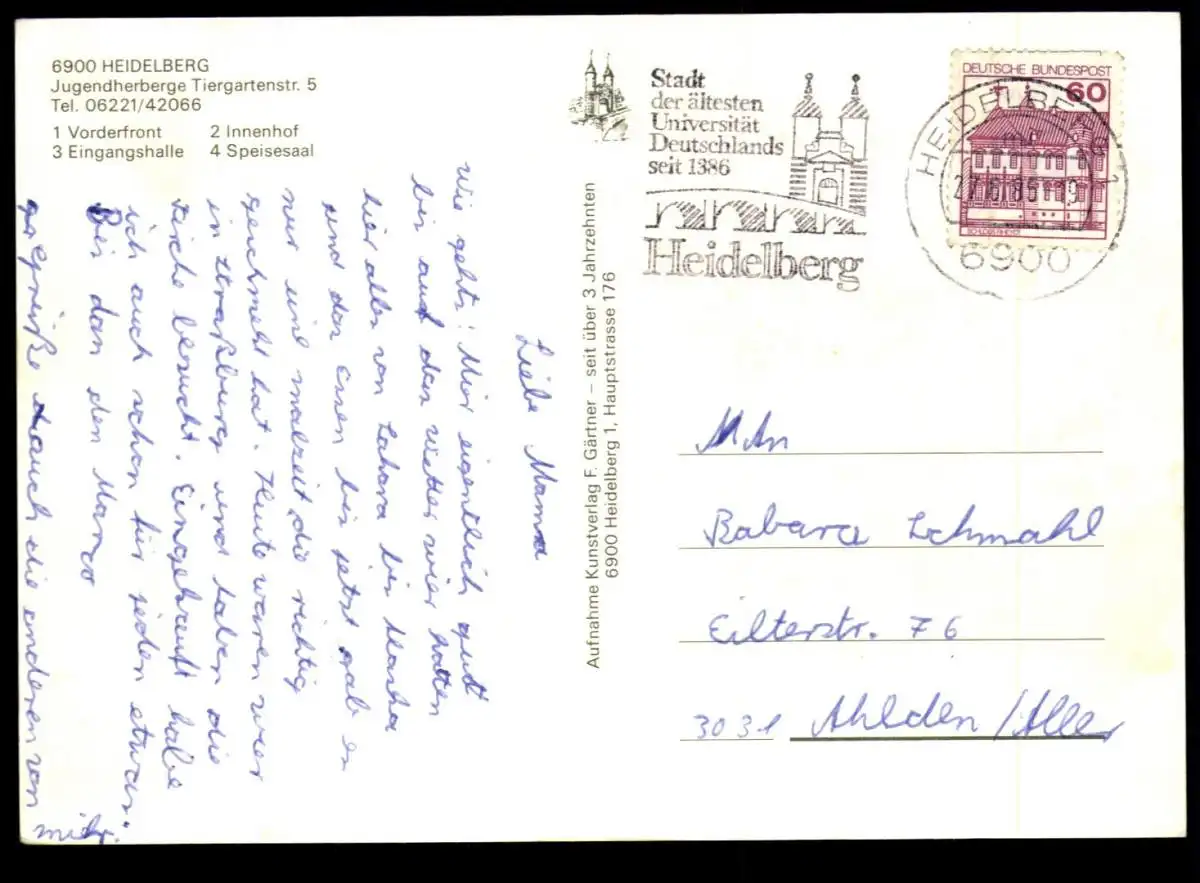 6900 HEIDELBERG
Jugendherberge Tiergartenstr. 5
Tel. 06221/42066
1 Vorderfront 2 Innenhof
3 Eingangshalle 4 Speisesaal
Liebe Mama
wie gehts! Mir eigentlich gut
bin auf das wetter wier hatten
hier alles von Sahara bis
und das essen bis jetzt gab es
nur eine malzeit die richtig
geschmekt hat. Heute waren wier
in straßburg und haben die
Kirche besucht. Eingekauft habe
ich auch schon für jeden etwas.
Bis dan den Marco
Grüße auch die anderen von
mir.
Aufnahme Kunstverlag F. Gärtner – seit über 3 Jahrzehnten
6900 Heidelberg 1, Hauptstrasse 176
Stadt
der ältesten
Universität
Deutschlands
seit 1386
Heidelberg
DEUTSCHE BUNDESPOST
60
HEIDELBERG 1
6900
An
Babara Schmahl
Eilterstr. 76
3031 Ahlden/Aller